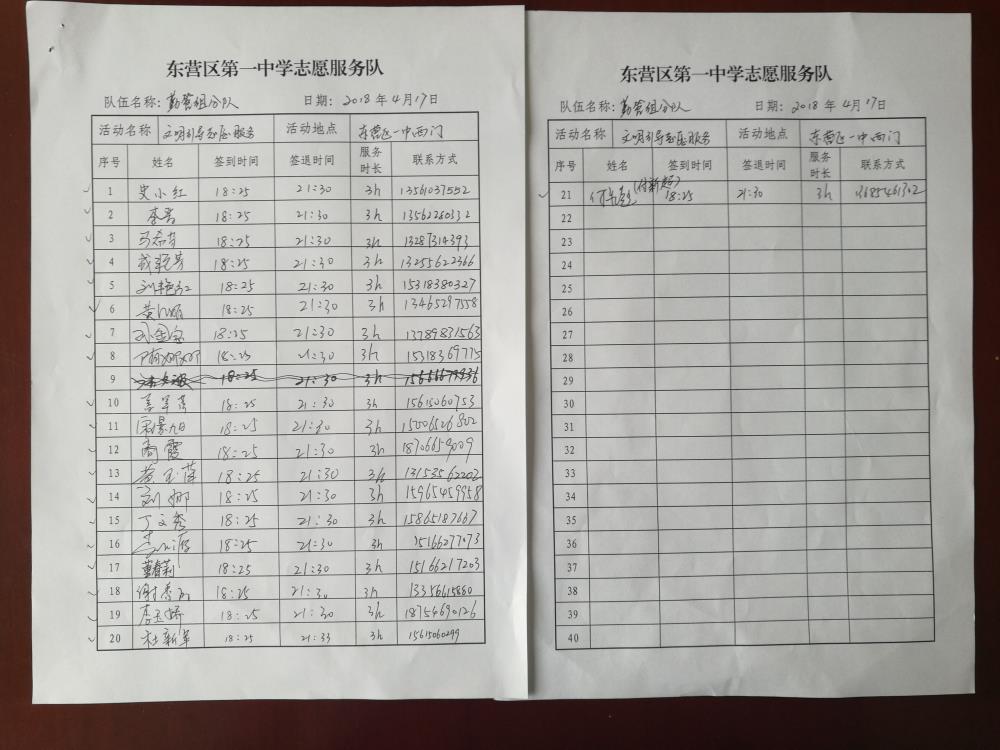 东营区第一中学志愿服务队
队伍名称: 勤营组分队 日期: 2018年4月17日
活动名称 文明引导志愿服务 活动地点 东营区一中西门
序号 姓名 签到时间 签退时间 服务时长 联系方式
1 史小红 18:25 21:30 3h 13561037552
2 李营 18:25 21:30 3h 13562280332
3 马希芳 18:25 21:30 3h 13287314393
4 18:25 21:30 3h 13255622366
5 刘艳红 18:25 21:30 3h 15318380327
6 18:25 21:30 3h 13465297558
7 孙金宝 18:25 21:30 3h 13789831563
8 隋娜娜 18:25 21:30 3h 15318369775
9 18:25 21:30 3h
10 18:25 21:30 3h 15615060753
11 宋景旭 18:25 21:30 3h 15006526802
12 商霞 18:25 21:30 3h 18706659009
13 黄玉萍 18:25 21:30 3h 13153562202
14 刘娜 18:25 21:30 3h 15965459958
15 丁文秀 18:25 21:30 3h 15865187667
16 18:25 21:30 3h 15166277073
17 董春莉 18:25 21:30 3h 15166217203
18 18:25 21:30 3h 13356615880
19 李玉娇 18:25 21:30 3h 18754690126
20 杜新军 18:25 21:33 3h 15615060299
东营区第一中学志愿服务队
队伍名称: 勤营组分队 日期: 2018年4月17日
活动名称 文明引导志愿服务 活动地点 东营区一中西门
序号 姓名 签到时间 签退时间 服务时长 联系方式
21 付新超 (付新超) 18:25 21:30 3h 13685461302
22
23
24
25
26
27
28
29
30
31
32
33
34
35
36
37
38
39
40